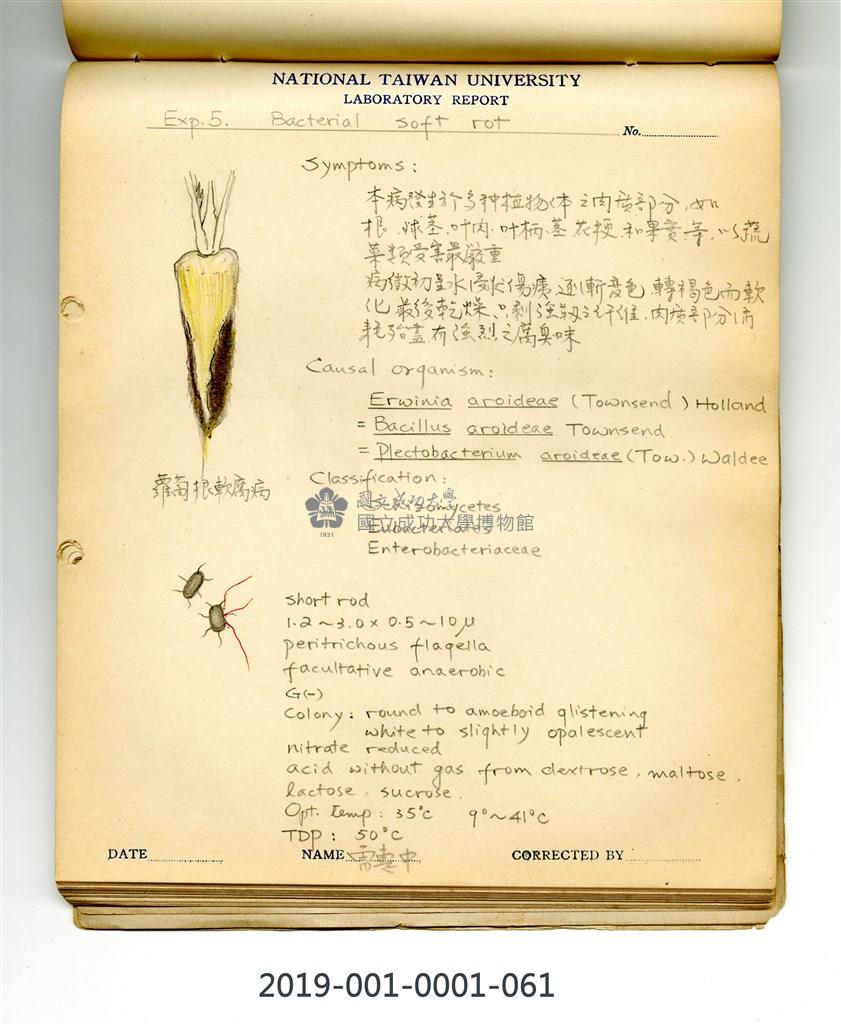 NATIONAL TAIWAN UNIVERSITY
LABORATORY REPORT
Exp. 5. Bacterial soft rot No.
Symptoms:
本病發生於多種植物体之肉质部分, 如
根、球莖、叶肉、叶柄、莖、花梗、和果實等, 以蔬
菜類受害最嚴重
病徵初呈水浸狀傷痍, 逐漸变色, 轉褐色而軟
化, 最後乾燥, 只剩強韌之纤维, 肉质部分消
耗殆盡, 有強烈之腐臭味
Causal organism:
Erwinia aroideae (Townsend) Holland
= Bacillus aroideae Townsend
= Plectobacterium aroideae (Tow.) Waldee
蘿蔔根軟腐病
Classification:
Schizomycetes
Eubacteriales
Enterobacteriaceae
國立成功大學
國立成功大學博物館
1931
short rod
1.2~3.0 x 0.5~10 μ
peritrichous flagella
facultative anaerobic
G(-)
Colony: round to amoeboid glistening
white to slightly opalescent
nitrate reduced
acid without gas from dextrose, maltose,
lactose, sucrose.
Opt. temp: 35°C 9°~41°C
TDP: 50°C
DATE NAME 中 CORRECTED BY
2019-001-0001-061